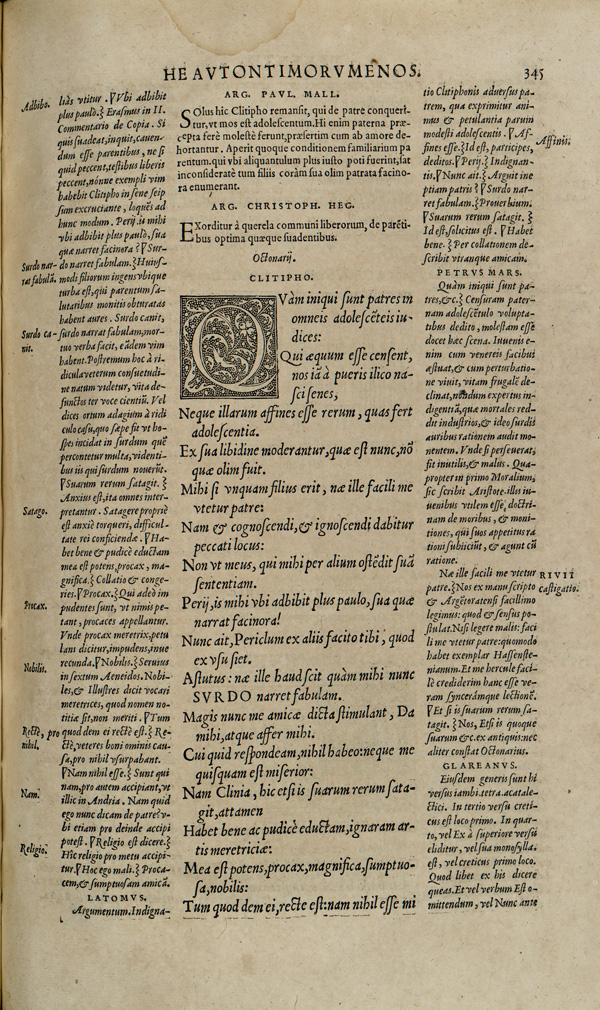 HEAVTONTIMORVMENOS.
345
Adhibo.
liàs vtitur. ƍVbi adhibit
plus paulò.} Erasmus in II.
Commentario de Copia. Si
quis suadeat, inquit, cauen-
dum esse parentibus, ne si
quid peccent, testibus liberis
peccent, nónne exempli vim
habebit Clitipho in sene seip
sum excruciante, loquēs ad
hunc modum. Perij, is mihi
vbi adhibit plus paulò, sua
quæ narrat facinora? ƍSur-
Surdo nar-
rat fabulā.
do narret fabulam.} Huius-
modi filiorum ingens vbique
turba est, qui parentum sa-
lutaribus monitis obturatas
habent aures. Surdo canit,
Surdo ca-
nit.
surdo narrat fabulam, mor-
tuo verba facit, eādem vim
habent. Postremum hoc à ri-
dicula veterum consuetudi-
ne natum videtur, vita de-
functos ter voce cientiū. Vel
dices ortum adagium à ridi
culo casu, quo sæpe fit vt ho-
spes incidat in surdum quē
percontetur multa, videnti-
bus iis qui surdum nouerūt.
ƍSuarum rerum satagit.}
Anxius est, ita omnes inter-
Satago.
pretantur. Satagere propriè
est anxiè torqueri, difficul-
tate rei conficiendæ. ƍHa-
bet bene & pudicè eductam
mea est potens, procax, ma-
gnifica.} Collatio & conge-
ries. ƍProcax.} Qui adeò im
Procax.
pudentes sunt, vt nimis pe-
tant, procaces appellantur.
Vnde procax meretrix, petu
lans dicitur, impudens, inue
recunda. ƍNobilis.} Seruius
Nobilis.
in sextum Aeneidos. Nobi-
les, & Illustres dicit vocari
meretrices, quod nomen no-
titiæ sit, non meriti. ƍTum
Rectè, pro
nihil.
quod dem ei rectè est.} Re-
ctè, veteres boni ominis cau-
sa, pro nihil vsurpabant.
ƍNam nihil esse.} Sunt qui
nam, pro autem accipiant, vt
Nam.
illic in Andria. Nam quid
ego nunc dicam de patre? v-
bi etiam pro deinde accipi
potest. ƍReligio est dicere.}
Religio.
Hîc religio pro metu accipi-
tur. ƍHoc ego mali.} Proca-
cem, & sumptuosam amicā.
LATOMVS.
Argumentum. Indigna-
ARG. PAVL. MALL.
SOlus hic Clitipho remansit, qui de patre conqueri-
tur, vt mos est adolescentum. Hi enim paterna præ-
cepta ferè molestè ferunt, præsertim cum ab amore de-
hortantur. Aperit quoque conditionem familiarium pa
rentum. qui vbi aliquantulum plus iusto poti fuerint, sat
inconsideratè tum filiis corám sua olim patrata facino-
ra enumerant.
ARG. CHRISTOPH. HEG.
EXorditur à querela communi liberorum, de parēti-
bus optima quæque suadentibus.
Octonarij.
CLITIPHO.
QVàm iniqui sunt patres in
omneis adolescēteis iu-
dices:
Qui æquum esse censent,
nos iā à pueris ilico na-
sci senes,
Neque illarum affines esse rerum, quas fert
adolescentia.
Ex sua libidine moderantur, quæ est nunc, nō
quæ olim fuit.
Mihi si vnquam filius erit, næ ille facili me
vtetur patre:
Nam & cognoscendi, & ignoscendi dabitur
peccati locus:
Non vt meus, qui mihi per alium ostēdit suā
sententiam.
Perij, is mihi vbi adhibit plus paulo, sua quæ
narrat facinora!
Nunc ait, Periclum ex aliis facito tibi, quod
ex vsu siet.
Astutus: næ ille haud scit quàm mihi nunc
SVRDO narret fabulam.
Magis nunc me amicæ dicta stimulant, Da
mihi, atque affer mihi.
Cui quid respondeam, nihil habeo: neque me
quisquam est miserior:
Nam Clinia, hic etsi is suarum rerum sata-
git, attamen
Habet bene ac pudicè eductam, ignaram ar-
tis meretriciæ:
Mea est potens, procax, magnifica, sumptuo-
sa, nobilis:
Tum quod dem ei, rectè est: nam nihil esse mi
tio Clitiphonis aduersus pa-
trem, qua exprimitur ani-
mus & petulantia parum
modesti adolescentis. ƍAf-
Affinis.
fines esse.} Id est, participes,
deditos. ƍPerij.} Indignan-
tis. ƍNunc ait.} Arguit ine
ptiam patris? ƍSurdo nar-
ret fabulam.} Prouerbium.
ƍSuarum rerum satagit.}
Id est, solicitus est. ƍHabet
bene.} Per collationem de-
scribit vtranque amicam.
PETRVS MARS.
Quàm iniqui sunt pa-
tres, &c.} Censuram pater-
nam adolescētulo volupta-
tibus dedito, molestam esse
docet hæc scena. Iuuenis e-
nim cum venereis facibus
æstuat, & cum perturbatio-
ne viuit, vitam frugalē de-
clinat, nōdum expertus in-
digentiā, quæ mortales red-
dit industrios, & ideo surdis
auribus rationem audit mo-
nentem. Vnde si perseuerat,
fit inutilis, & malus. Qua-
propter in primo Moralium,
sic scribit Aristote. illis iu-
uenibus vtilem esse doctri-
nam de moribus, & moni-
tiones, qui suos appetitus ra
tioni subiiciūt, & agunt cū
ratione.
Næ ille facili me vtetur
RIVII
castigatio.
patre.} Nos ex manuscripto
& Argētoratensi facillimo
legimus: quod & sensus po-
stulat. Nisi legere malis: faci
li me vtetur patre: quomodo
habet exemplar Hassenste-
nianum. Et me hercule faci-
lè crediderim hanc esse ve-
ram syncerámque lectionē.
ƍEt si is suarum rerum sa-
tagit.} Nos, Etsi is quoque
suarum &c. ex antiquis: nec
aliter constat Octonarius.
GLAREANVS.
Eiusdem generis sunt hi
versus iambi. tetra. acatale-
ctici. In tertio versu creti-
cus est loco primo. In quar-
to, vel Ex à superiore versu
eliditur, vel sua monosylla.
est, vel creticus primo loco.
Quod libet ex his dicere
queas. Et vel verbum Est o-
mittendum, vel Nunc ante